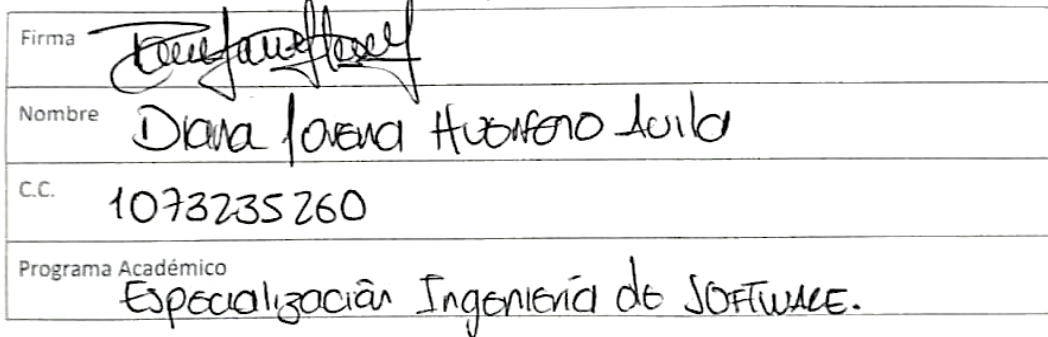 Firma
Nombre Diana Lorena Huerfano Avila
C.C. 1073235260
Programa Académico
Especialización Ingeniería de SOFTWARE.